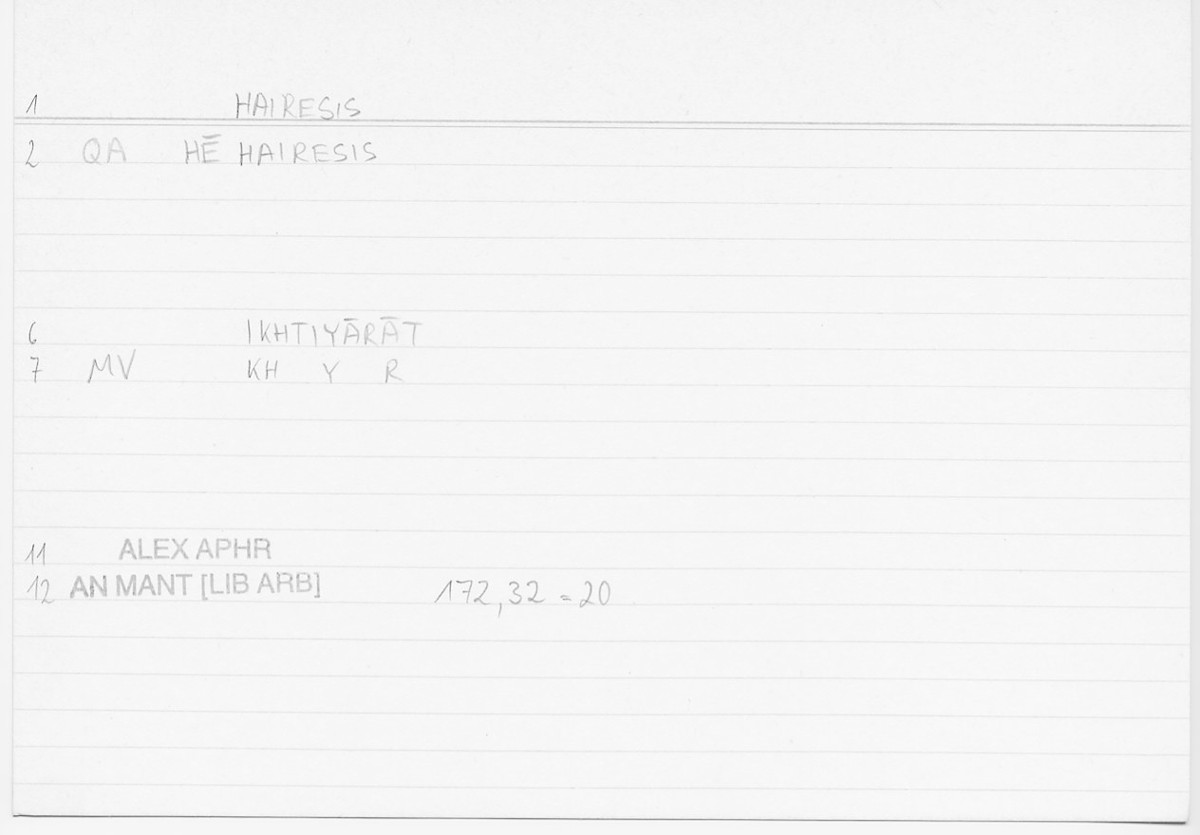 1 HAIRESIS
2 QA HĒ HAIRESIS
6 IKHTIYĀRĀT
7 MV KH Y R
11 ALEX APHR
12 AN MANT [LIB ARB] 172,32 = 20